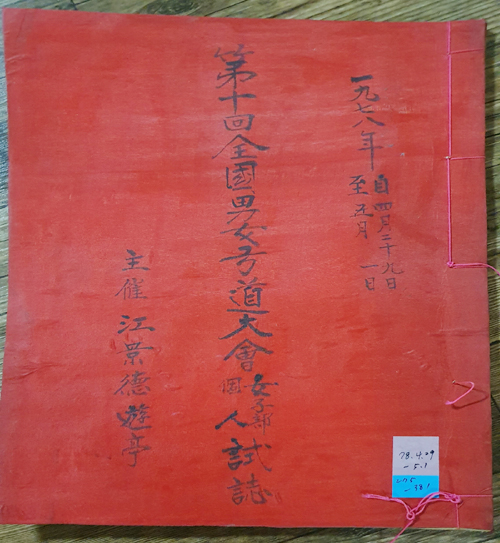 一九七八年
自四月二十九日
至五月一日
第十回全國男女弓道大會
女子部
個人試誌
主催 江景德遊亭
78.4.29
-5.1